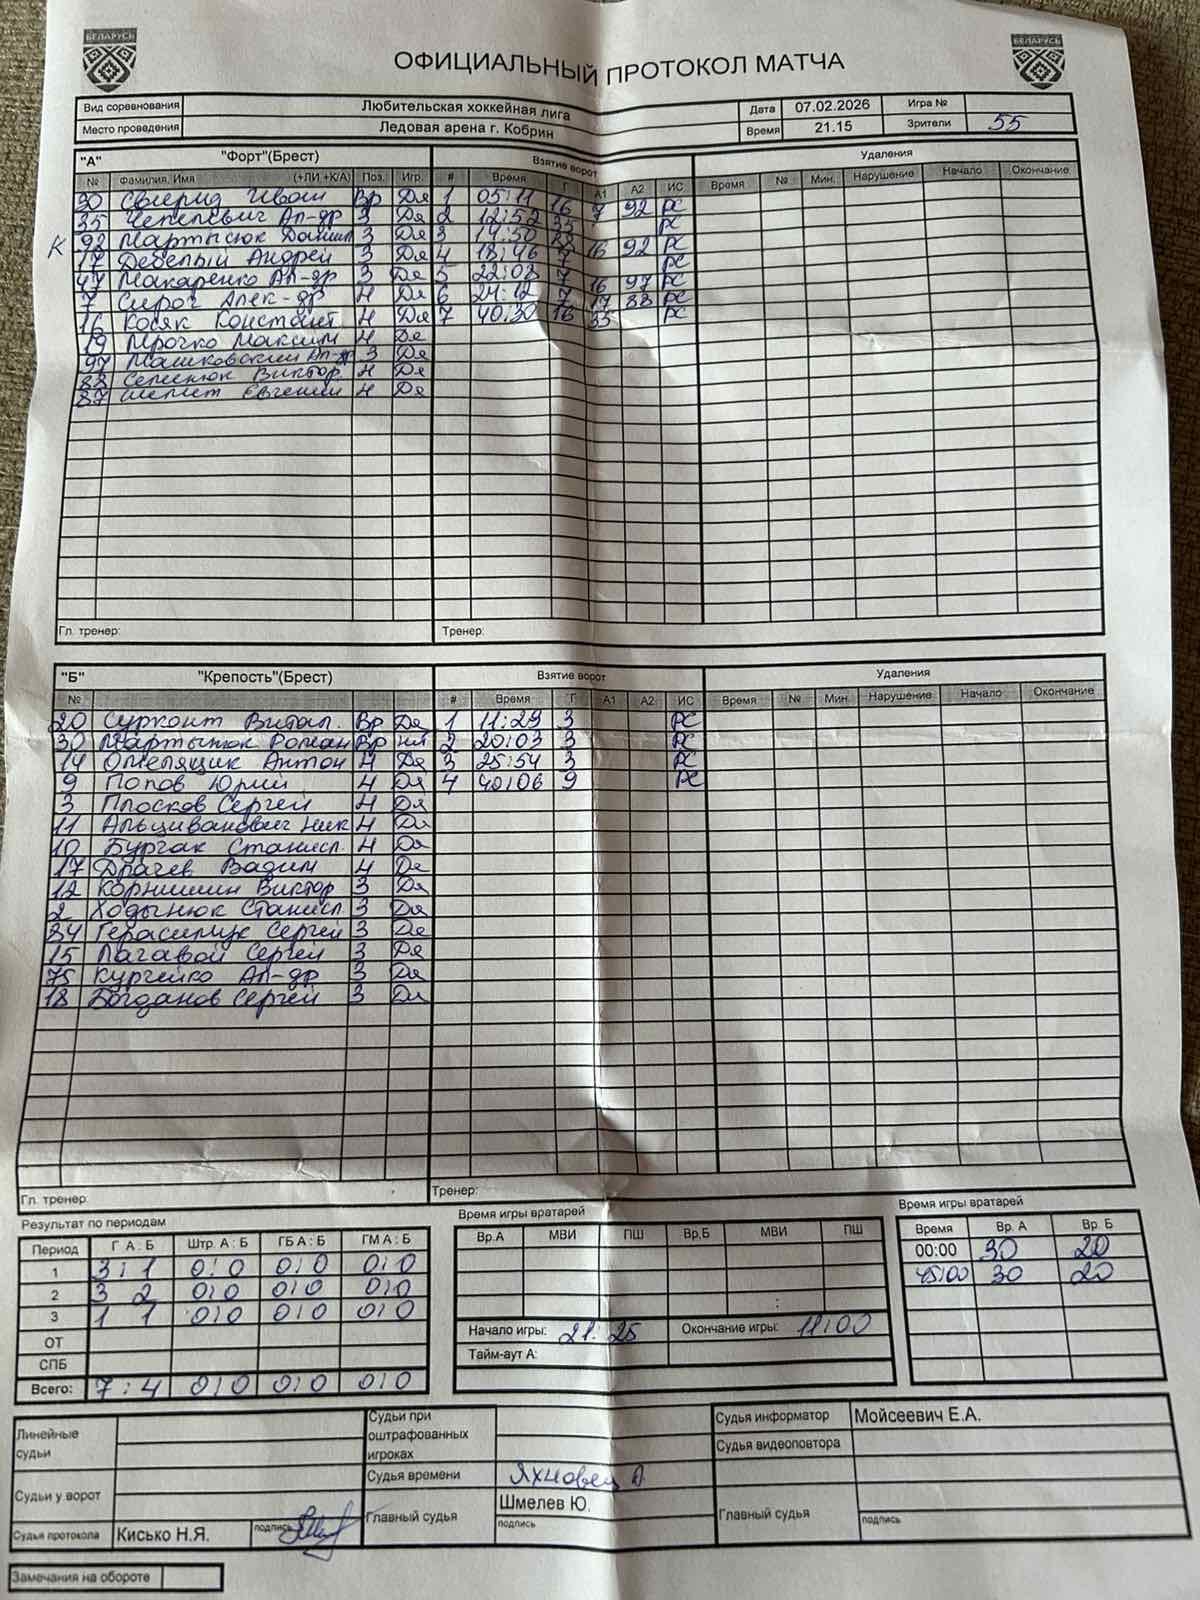 БЕЛАРУСЬ БЕЛАРУСЬ
ОФИЦИАЛЬНЫЙ ПРОТОКОЛ МАТЧА
Вид соревнования Любительская хоккейная лига Дата 07.02.2026 Игра №
Место проведения Ледовая арена г. Кобрин Время 21.15 Зрители 55
"А" "Форт"(Брест) Взятие ворот Удаления
№ Фамилия, Имя (+ЛИ +К/А) Поз. Игр. # Время Г А1 А2 ИС Время № Мин. Нарушение Начало Окончание
30 Свирид Иван Вр Да 1 05:11 16 7 92 РС
35 Чепелевич Ал-др З Да 2 12:52 35 РС
К 92 Мартысюк Даниил З Да 3 14:50 88 16 92 РС
17 Дебелый Андрей З Да 4 18:46 7 РС
47 Макаренко Ал-др З Да 5 22:03 7 16 97 РС
7 Сирог Алек-др Н Да 6 24:12 7 17 88 РС
16 Косяк Констант Н Да 7 40:30 16 35 РС
19 Мрочко Максим Н Да
97 Машковский Ал-др З Да
88 Семенюк Виктор Н Да
87 Шепит Евгений Н Да
Гл. тренер: Тренер:
"Б" "Крепость"(Брест) Взятие ворот Удаления
№ # Время Г А1 А2 ИС Время № Мин. Нарушение Начало Окончание
20 Суркоит Витал. Вр Да 1 11:29 3 РС
30 Мартынюк Роман Вр 2 20:03 3 РС
14 Омелящик Антон Н Да 3 25:54 3 РС
9 Попов Юрий Н Да 4 40:06 9 РС
3 Плосков Сергей Н Да
11 Альциванович Ник Н Да
10 Бурчак Станисл. Н Да
17 Драчев Вадим Н Да
12 Корнишин Виктор З Да
2 Ходынюк Станисл З Да
84 Герасимук Сергей З Да
15 Лагавой Сергей З Да
75 Курчейко Ал-др З Да
18 Богданов Сергей З Да
Гл. тренер: Тренер:
Результат по периодам Время игры вратарей Время игры вратарей
Период Г А : Б Штр. А : Б ГБ А : Б ГМ А : Б Вр.А МВИ ПШ Вр.Б МВИ ПШ Время Вр. А Вр. Б
1 3:1 0:0 0:0 0:0 00:00 30 20
2 3 2 0:0 0:0 0:0 45:00 30 20
3 1 1 0:0 0:0 0:0
ОТ Начало игры: 21:25 Окончание игры: 11:00
СПБ Тайм-аут А:
Всего: 7:4 0:0 0:0 0:0
Линейные судьи
Судьи при оштрафованных игроках
Судья информатор Мойсеевич Е.А.
Судья видеоповтора
Судьи у ворот
Судья времени Яхновец
Главный судья Шмелев Ю.
подпись
Главный судья
подпись
Судья протокола Кисько Н.Я. подпись
Замечания на обороте